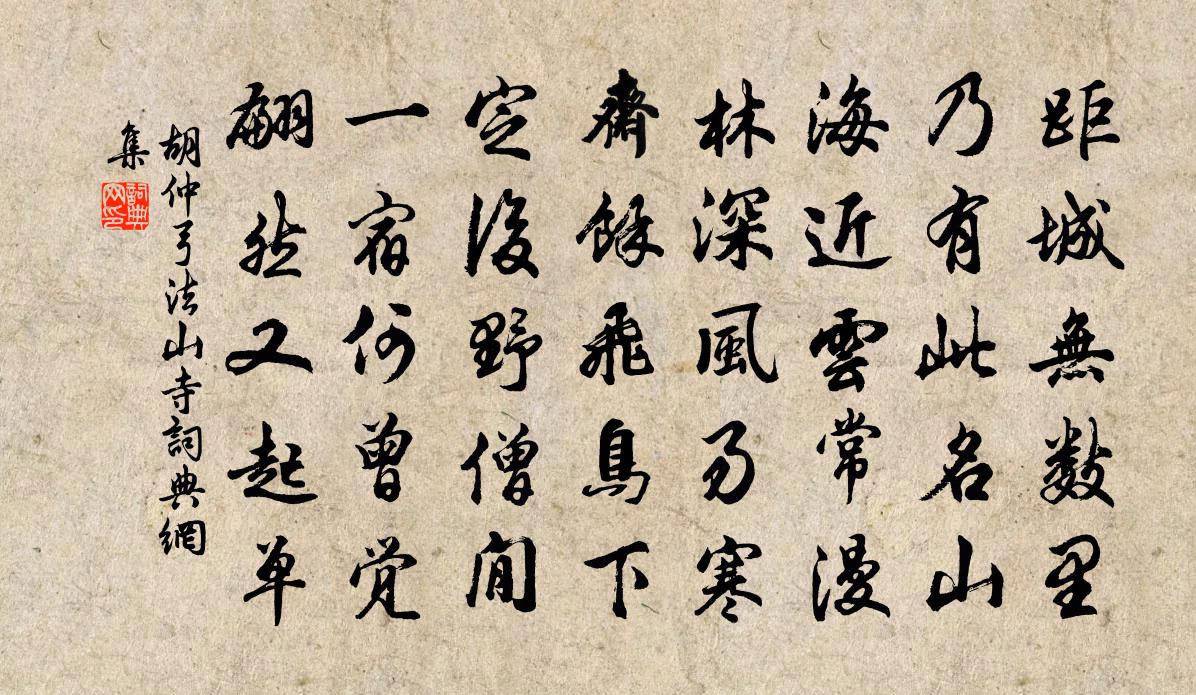 距城無數里
乃有此名山
海近雲常漫
林深風易寒
齋餘飛鳥下
定後野僧閒
一宿何曾覺
翩然又起單
胡仲弓法山寺詞典網
集
詞典网印